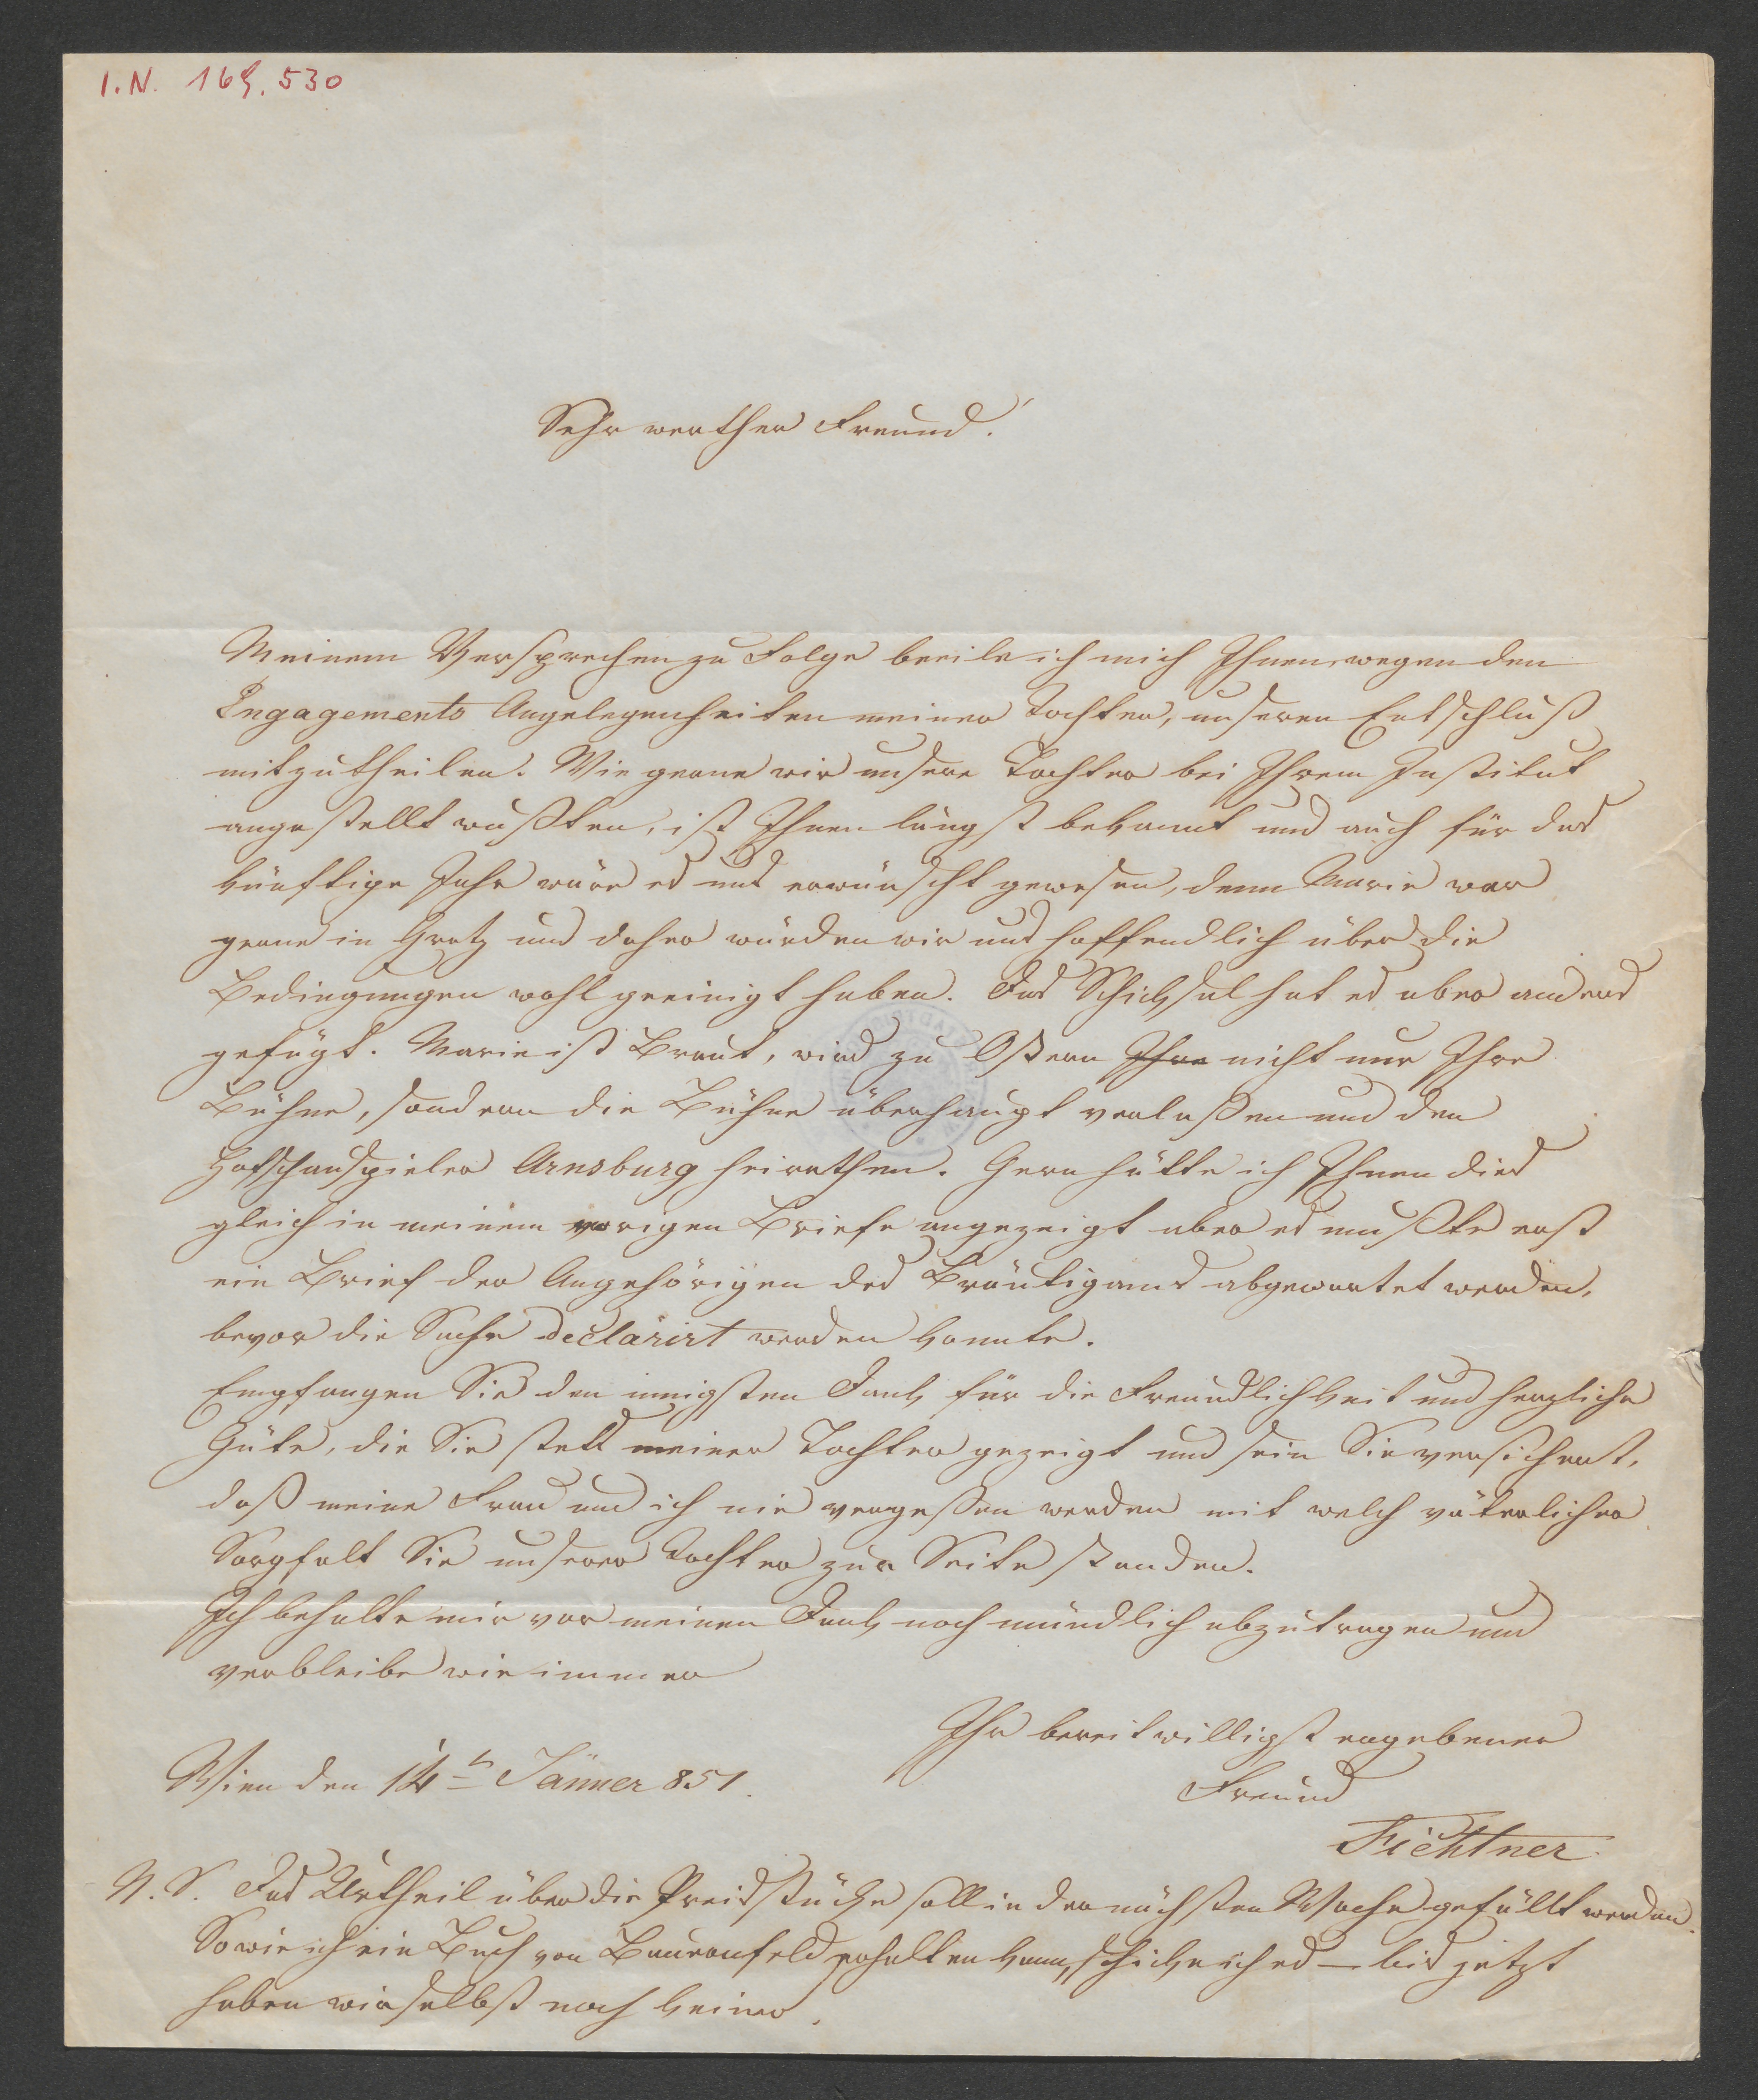 I.N. 169.530
Sehr werther Freund!
Meinem Versprechen zu Folge beeile ich mich Ihnen, wegen den
Engagements Angelegenheiten meiner Tochter, unseren Entschluß
mitzutheilen. Wie gerne wir unsere Tochter bei Ihrem Institut
angestellt wußten, ist Ihnen längst bekannt und auch für das
künftige Jahr wäre es uns erwünscht gewesen, denn Marie war
gerne in Gratz und daher würden wir uns hoffendlich über die
Bedingungen wohl geeinigt haben. Das Schicksal hat es aber anders
gefügt. Marie ist Braut, wird zu Ostern Ihre nicht nur Ihre
Bühne, sondern die Bühne überhaupt verlaßen und den
Hofschauspieler Arnsburg heirathen. Gern hätte ich Ihnen dies
gleich in meinem vorigen Briefe angezeigt aber es mußte erst
ein Brief der Angehörigen des Bräutigams abgewartet werden,
bevor die Sache declarirt werden konnte.
Empfangen Sie den innigsten Dank für die Freundlichkeit und herzliche
Güte, die Sie stets meiner Tochter gezeigt und sein Sie versichert,
daß meine Frau und ich nie vergeßen werden mit welch väterlicher
Sorgfalt Sie unserer Tochter zur Seite standen.
Ich behalte mir vor meinen Dank noch mündlich abzutragen und
verbleibe wie immer
Ihr bereitwilligst ergebener
Wien den 14t Jänner 851.
Freund
Fichtner
N. S. Das Urtheil über die Preisstücke soll in der nächsten Woche gefällt werden.
Sowie ich ein Buch von Bauernfeld erhalten kann, schicke ich es – bis jetzt
haben wir selbst noch keines.